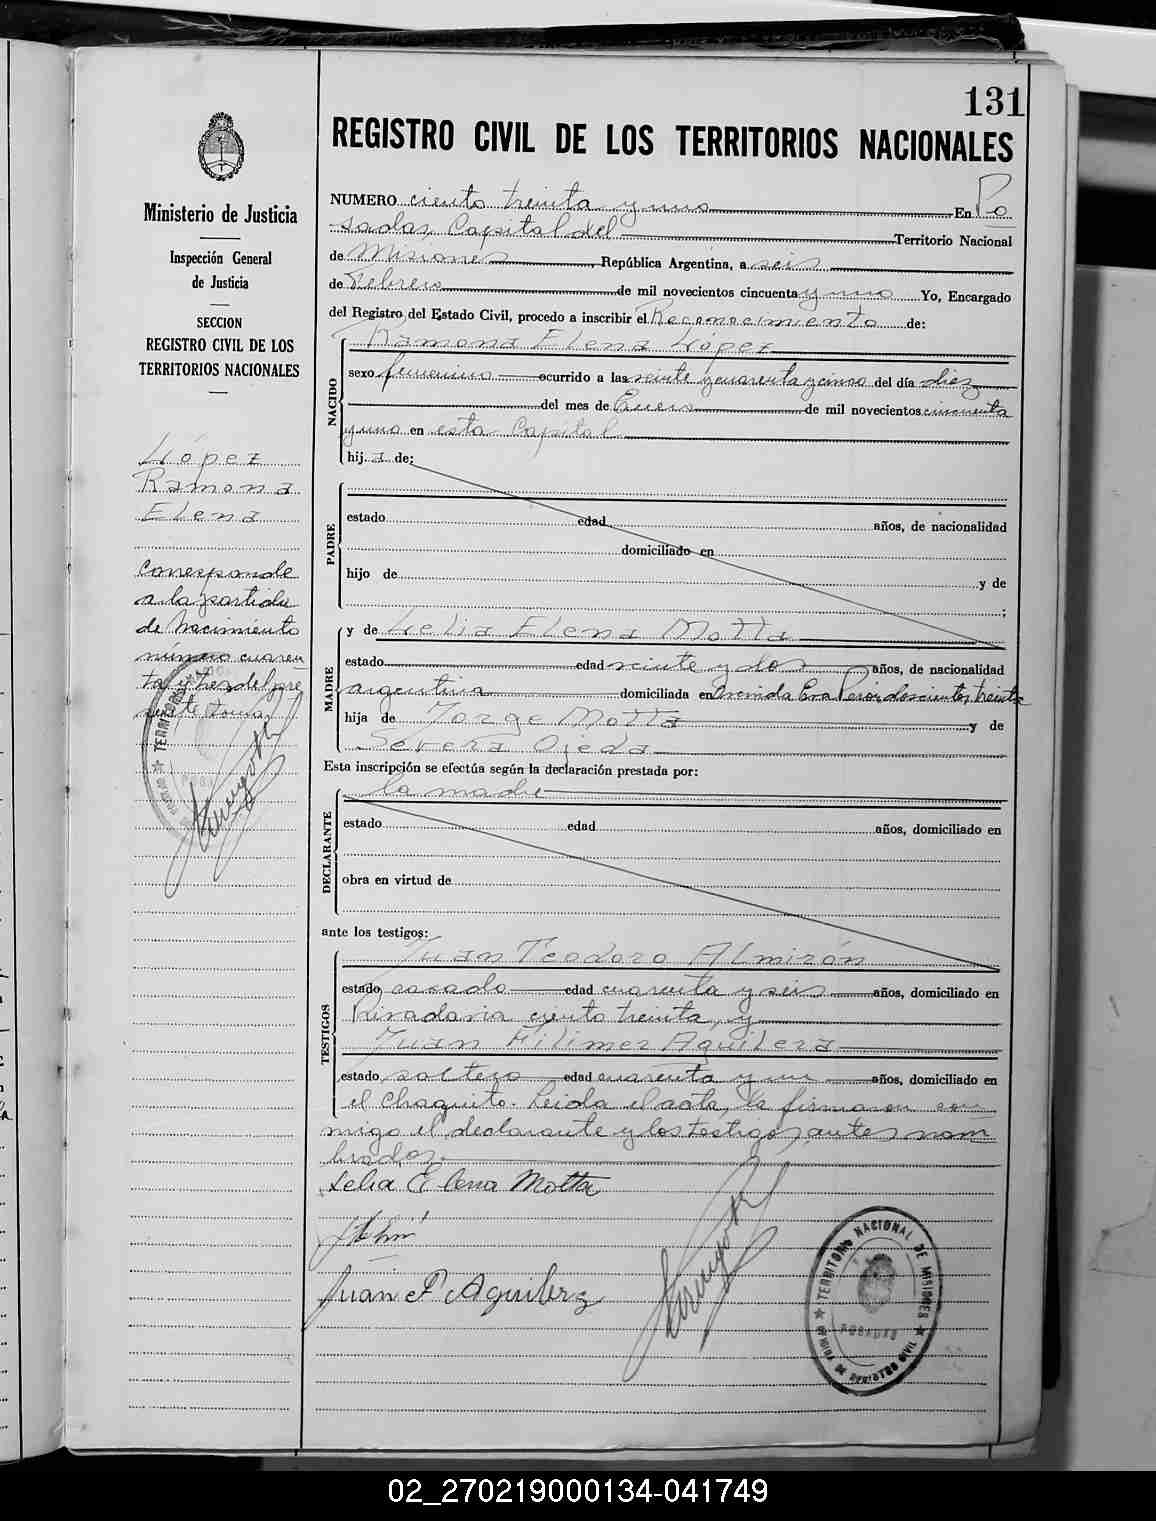 131
REGISTRO CIVIL DE LOS TERRITORIOS NACIONALES
Ministerio de Justicia
Inspección General
de Justicia
SECCION
REGISTRO CIVIL DE LOS
TERRITORIOS NACIONALES
López
Ramona
Elena
Corresponde
a la partida
de Nacimiento
número cuaren
ta y tres del pre
sente tomo
NUMERO ciento treinta y uno En Po
sadas, Capital del Territorio Nacional
de Misiones, República Argentina, a seis
de Febrero de mil novecientos cincuenta y uno Yo, Encargado
del Registro del Estado Civil, procedo a inscribir el Reconocimiento de:
NACIDO
Ramona Elena López
sexo femenino ocurrido a las veinte y cuarenta y cinco del día diez
del mes de Enero de mil novecientos cincuenta
y uno en esta Capital
hija de:
PADRE
estado edad años, de nacionalidad
domiciliado en
hijo de y de
;
MADRE
y de Lelia Elena Motta
estado edad veinte y dos años, de nacionalidad
argentina domiciliada en Avenida Eva Perón doscientos treinta
hija de Jorge Motta y de
Severa Ojeda
Esta inscripción se efectúa según la declaración prestada por:
la madre
DECLARANTE
estado edad años, domiciliado en
obra en virtud de
ante los testigos:
TESTIGOS
Juan Teodoro Almirón
estado casado edad cuarenta y seis años, domiciliado en
Rivadavia ciento treinta, y
Juan Filimer Aguilera
estado soltero edad cuarenta y un años, domiciliado en
el Chaquito. Leida el acta, la firmaron con
migo el declarante y los testigos antes nom
brados.
Lelia Elena Motta
Juan F Aguilera
TERRITORIO NACIONAL DE MISIONES
POSADAS
OFICINA DE REGISTRO CIVIL
02_270219000134-041749